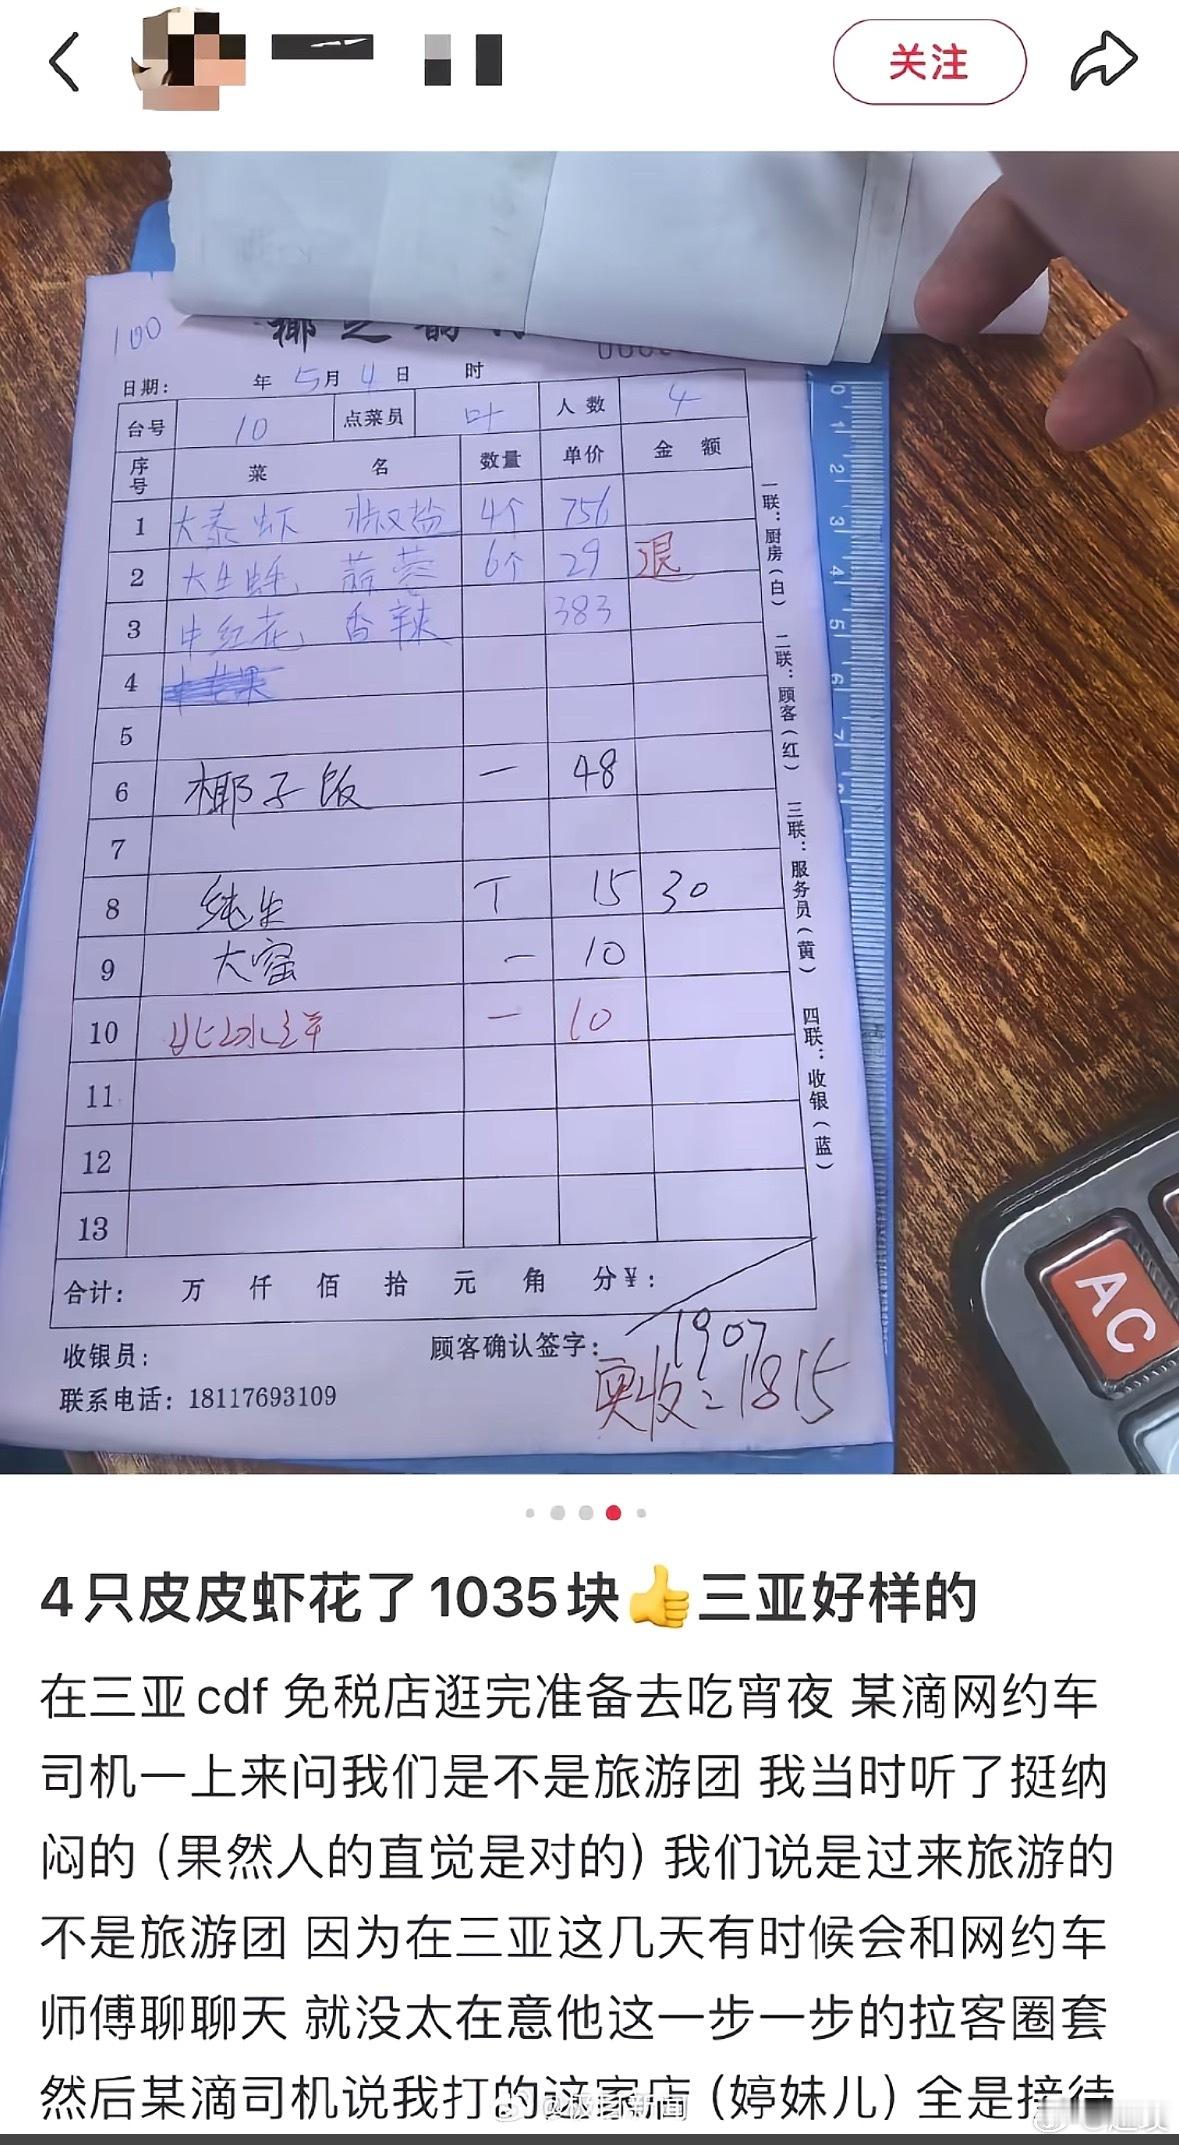 关注
100
椰之韵
日期: 年 5月 4日 时
台号 10 点菜员 叶 人数 4
序号 菜名 数量 单价 金额
1 大泰虾 椒盐 4个 756
2 大生蚝 蒜蓉 6个 29 退
3 中红花 香辣 383
4
5
6 椰子饭 一 48
7
8 纯生 T 15 30
9 大窑 一 10
10 北冰洋 一 10
11
12
13
合计: 万 仟 佰 拾 元 角 分¥:
1907
收银员: 顾客确认签字:
实收:1815
联系电话: 18117693109
一联:厨房(白) 二联:顾客(红) 三联:服务员(黄) 四联:收银(蓝)
0 1 2 3 4 5 6 7
AC
4只皮皮虾花了1035块👍三亚好样的
在三亚cdf 免税店逛完准备去吃宵夜 某滴网约车
司机一上来问我们是不是旅游团 我当时听了挺纳
闷的 (果然人的直觉是对的) 我们说是过来旅游的
不是旅游团 因为在三亚这几天有时候会和网约车
师傅聊聊天 就没太在意他这一步一步的拉客圈套
然后某滴司机说我打的这家店 (婷妹儿) 全是接待
@极目新闻